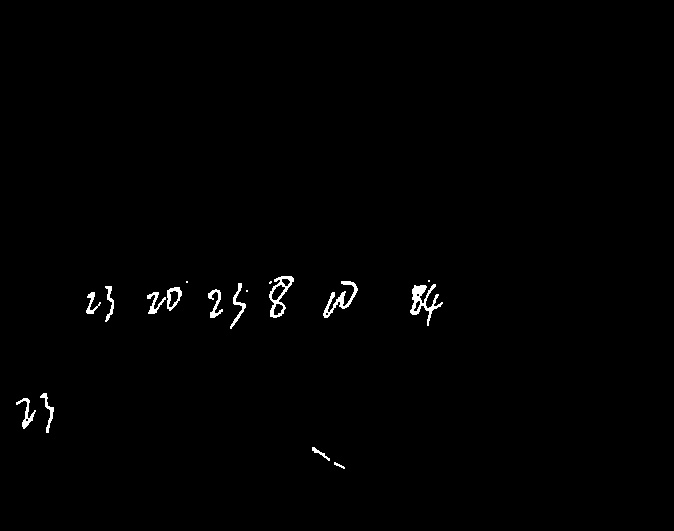 23 20 23 8 10 84
23